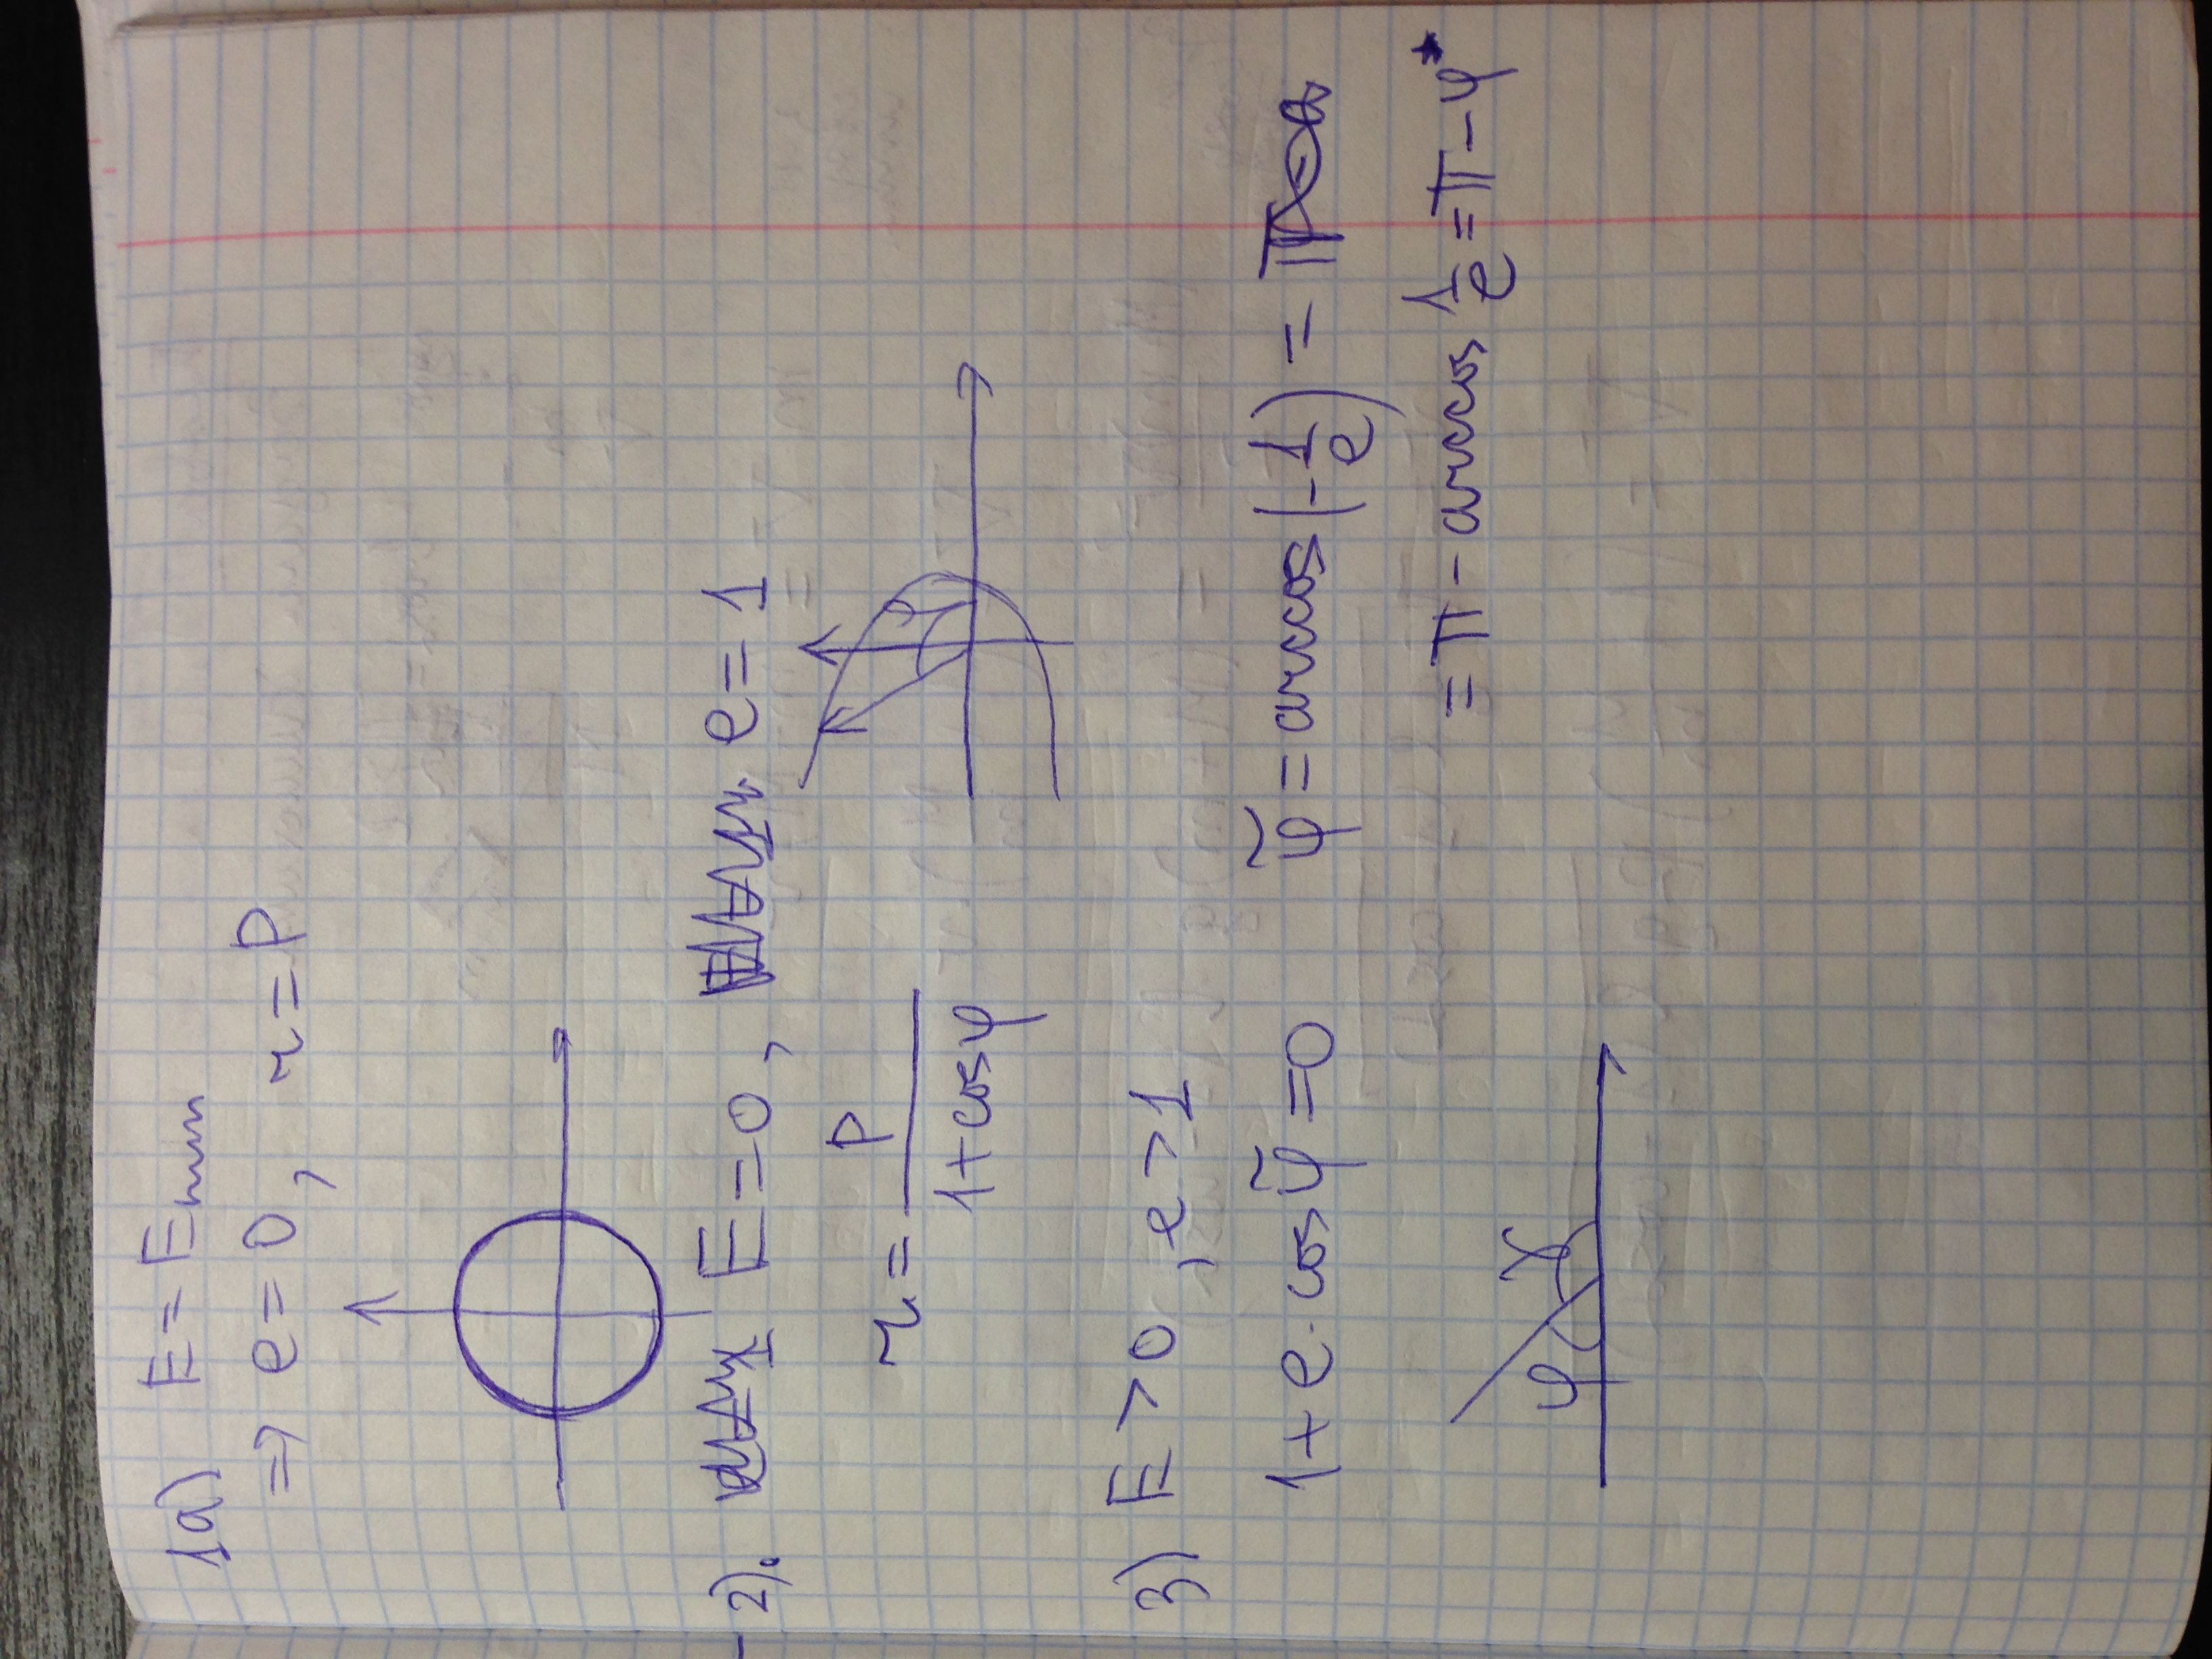 1a) E = Emin
⇒ e = 0, r = p
2). E = 0, e = 1
r = p / (1 + cos φ)
3) E > 0, e > 1
1 + e · cos φ̃ = 0 φ̃ = arccos(-1/e) =
= π - arccos 1/e = π - φ*
φ γ